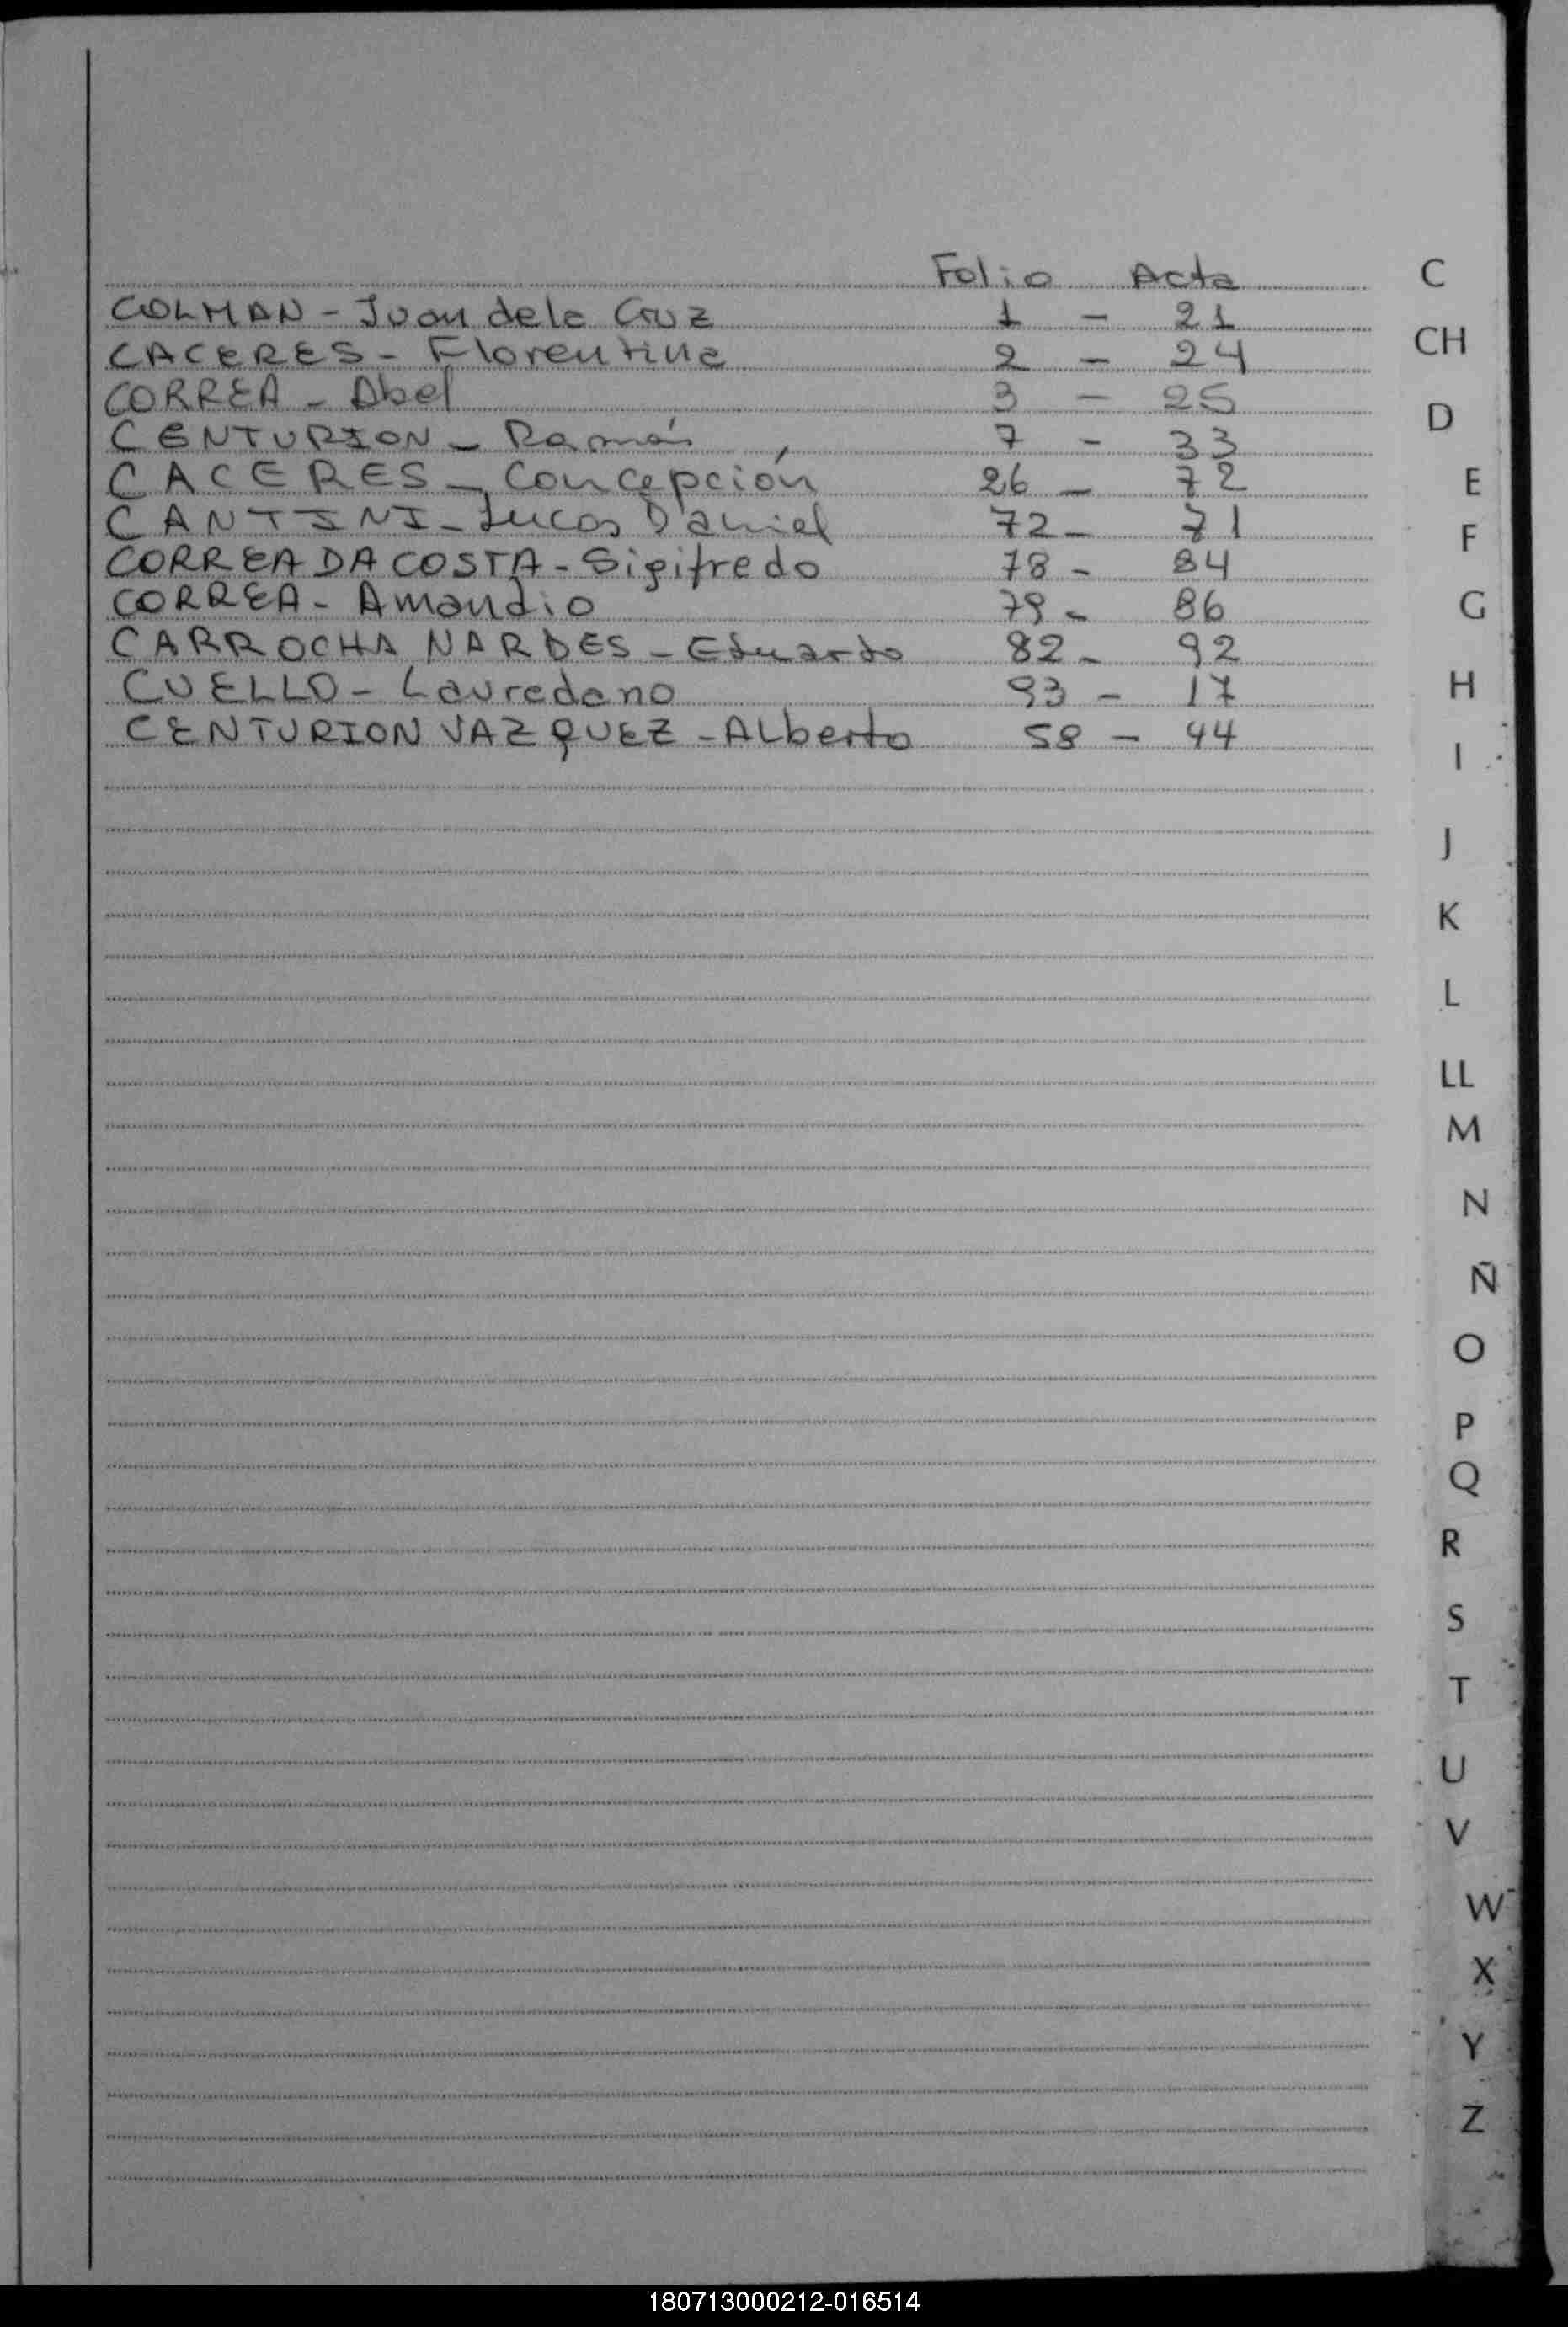 Folio Acta
COLMAN - Juan de la Cruz 1 - 21
CACERES - Florentina 2 - 24
CORREA - Abel 3 - 25
CENTURION - Ramón 7 - 33
CACERES - Concepción 26 - 72
CANTINI - Lucas Daniel 72 - 71
CORREA DA COSTA - Sigifredo 78 - 84
CORREA - Amandio 79 - 86
CARROCHA NARDES - Eduardo 82 - 92
CUELLO - Lauredano 93 - 17
CENTURION VAZQUEZ - ALberto 58 - 44
C
CH
D
E
F
G
H
I
J
K
L
LL
M
N
Ñ
O
P
Q
R
S
T
U
V
W
X
Y
Z
180713000212-016514